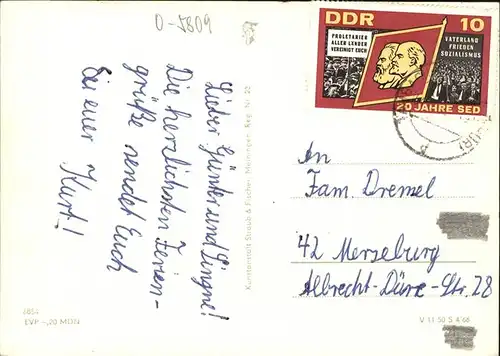 O-5809
DDR 10
PROLETARIER
ALLER LÄNDER
VEREINIGT EUCH
VATERLAND
FRIEDEN
SOZIALISMUS
20 JAHRE SED
Lieber Günter und Lingne!
Die herzlichsten Ferien-
grüße sendet Euch
Kurt!
Kunstanstalt Straub & Fischer Meiningen Reg. Nr. 22
An
Fam. Dremsel
42 Merseburg
Albrecht-Düre-Str. 28
EVP -,20 MDN
V 11 50 S 4/66